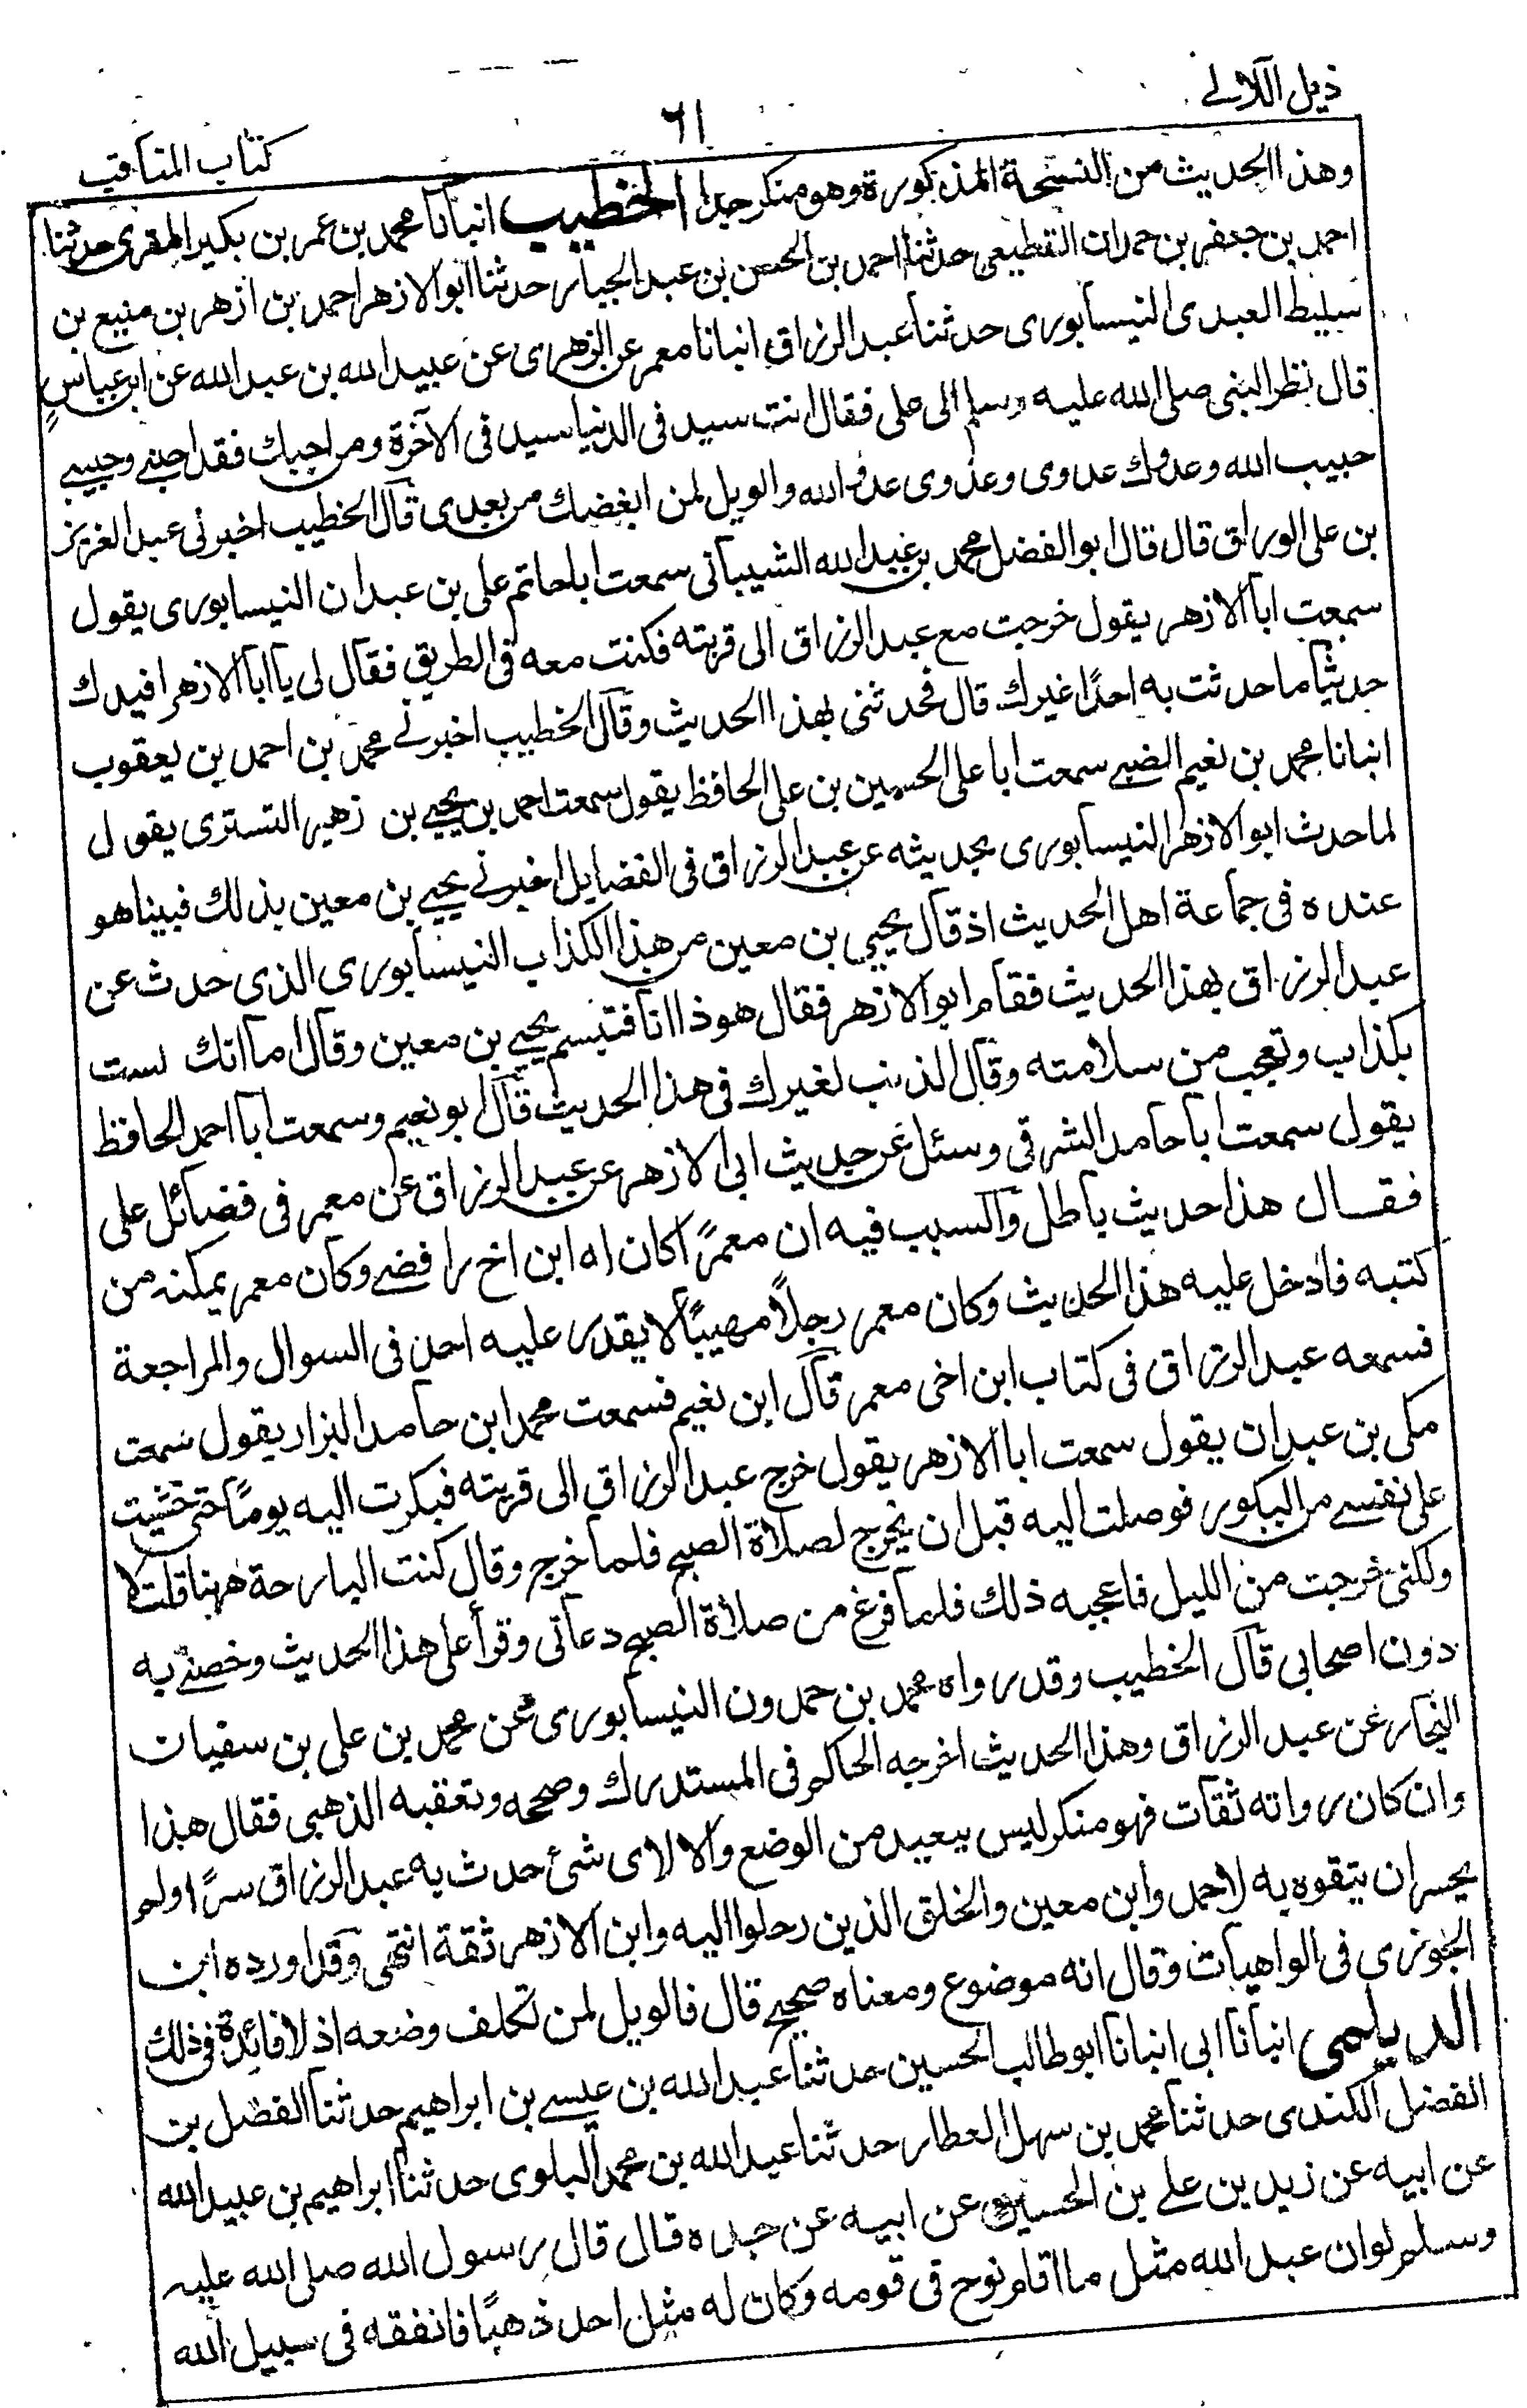 ذيل اللآلے
٦١
كتاب المناقب
وهذا الحديث من النسخة المذكورة وهو منكر جدا الخطيب انبأنا محمد بن عمر بن بكير المقرى حدثنا
احمد بن جعفر بن حمدان القطيعى حدثنا احمد بن الحسن بن عبد الجبار حدثنا ابو الازهر احمد بن ازهر بن منيع بن
سليط العبدى النيسابورى حدثنا عبد الرزاق انبانا معمر عن الزهرى عن عبيد الله بن عبد الله عن ابن عباسٍ
قال نظر النبى صلى الله عليه وسلم الى على فقال انت سيد فى الدنيا سيد فى الآخرة ومن احبك فقد احبنے وحبيبے
حبيب الله وعدوك عدوى وعدوى عدو الله والويل لمن ابغضك من بعدى قال الخطيب اخبرنى عبد العزيز
بن على الوراق قال قال ابو الفضل محمد بن عبد الله الشيبانى سمعت ابا حاتم على بن عبدان النيسابورى يقول
سمعت ابا الازهر يقول خرجت مع عبد الرزاق الى قريته فكنت معه فى الطريق فقال لى يا ابا الازهر افيدك
حديثا ما حدثت به احدًا غيرك قال فحدثنى بهذا الحديث وقال الخطيب اخبرنے محمد بن احمد بن يعقوب
انبانا محمد بن نعيم الضبے سمعت ابا على الحسين بن على الحافظ يقول سمعت احمد بن يحيے بن زهير التسترى يقول
لما حدث ابو الازهر النيسابورى بحديثه عن عبد الرزاق فى الفضايل اخبرنے يحيے بن معين بذلك فبينا هو
عنده فى جماعة اهل الحديث اذ قال يحيى بن معين من هذا الكذاب النيسابورى الذى حدث عن
عبد الرزاق بهذا الحديث فقام ابو الازهر فقال هو ذا انا فتبسم يحيے بن معين وقال اما انك لست
بكذاب وتعجب من سلامته وقال الذنب لغيرك فى هذا الحديث قال ابو نعيم وسمعت ابا احمد الحافظ
يقول سمعت ابا حامد الشرقى وسئل عن حديث ابى الازهر عن عبد الرزاق عن معمر فى فضائل على
فقال هذا حديث باطل والسبب فيه ان معمرًا كان له ابن اخ رافضے وكان معمر يمكنه من
كتبه فادخل عليه هذا الحديث وكان معمر رجلًا مهيبًا لا يقدر عليه احد فى السوال والمراجعة
فسمعه عبد الرزاق فى كتاب ابن اخى معمر قال ابن نعيم فسمعت محمد ابن حامد البزار يقول سمعت
مكى بن عبدان يقول سمعت ابا الازهر يقول خرج عبد الرزاق الى قريته فبكرت اليه يومًا حتى خشيت
على نفسے من البكور فوصلت اليه قبل ان يخرج لصلاة الصبح فلما خرج وقال كنت البارحة ههنا قلت لا
ولكنى خرجت من الليل فاعجبه ذلك فلما فرغ من صلاة الصبح دعانى وقرأ على هذا الحديث وخصنے به
دون اصحابى قال الخطيب وقد رواه محمد بن حمدون النيسابورى عن محمد بن على بن سفيان
النجار عن عبد الرزاق وهذا الحديث اخرجه الحاكم فى المستدرك وصححه وتعقبه الذهبى فقال هذا
وان كان رواته ثقات فهو منكر ليس ببعيد من الوضع والا لاى شئ حدث به عبد الرزاق سرًا ولم
يجسر ان يتفوه به لاحمد وابن معين والخلق الذين رحلوا اليه وابن الازهر ثقة انتهى وقد اورده ابن
الجوزى فى الواهيات وقال انه موضوع ومعناه صحيح قال فالويل لمن تكلف وضعه اذ لا فائدة فى ذلك
الديلمى انبأنا ابى انبانا ابو طالب الحسين حدثنا عبد الله بن عيسے بن ابراهيم حدثنا الفضل بن
الفضل الكندى حدثنا محمد بن سهل العطار حدثنا عبد الله بن محمد البلوى حدثنا ابراهيم بن عبيد الله
عن ابيه عن زيد بن علے بن الحسين عن ابيه عن جده قال قال رسول الله صلى الله عليه
وسلم لو ان عبد الله مثل ما اقام نوح فى قومه وكان له مثل احد ذهبًا فانفقه فى سبيل الله